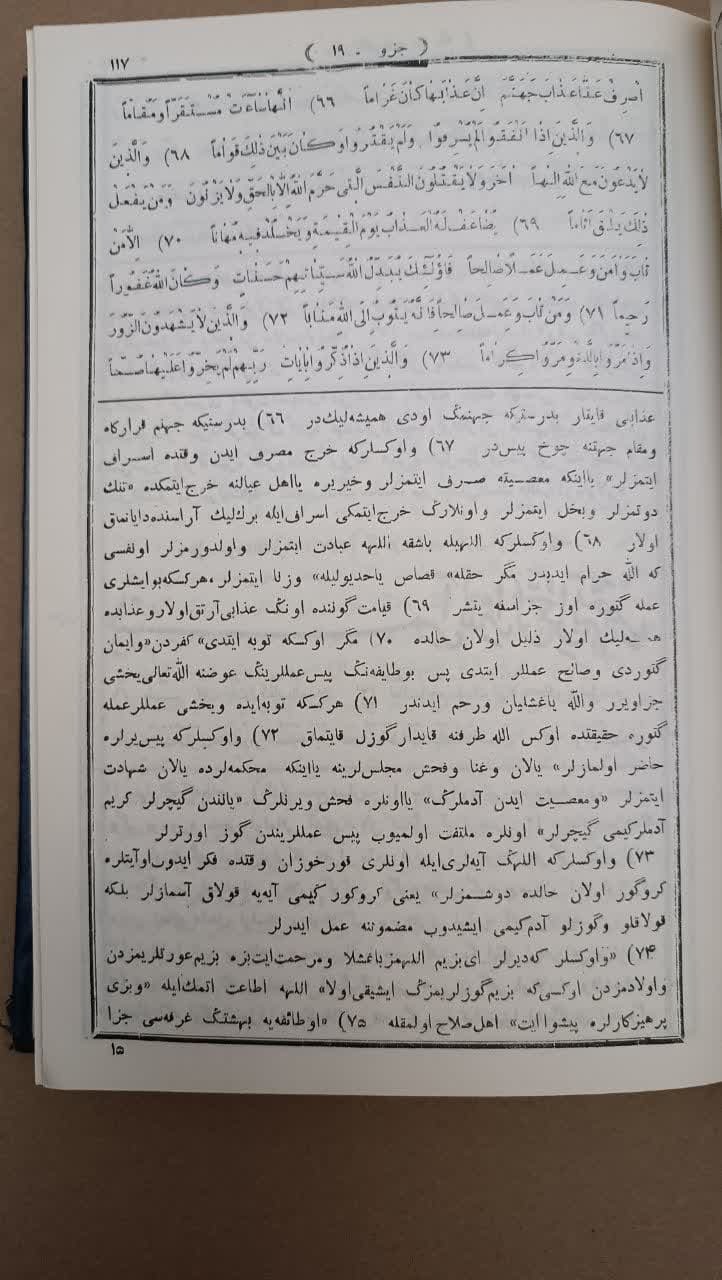 ( جزو - ۱۹ )
۱۱۷
اصْرِفْ عَنَّا عَذَابَ جَهَنَّمَ اِنَّ عَذَابَهَا كَانَ غَرَاماً ۶۶) اِنَّهَا سَاءَتْ مُسْتَقَرّاً وَمُقَاماً
۶۷) وَالَّذِينَ اِذَا اَنْفَقُوا لَمْ يُسْرِفُوا وَلَمْ يَقْتُرُوا وَكَانَ بَيْنَ ذٰلِكَ قَوَاماً ۶۸) وَالَّذِينَ
لَايَدْعُونَ مَعَ اللّٰهِ اِلٰهاً اٰخَرَ وَلَا يَقْتُلُونَ النَّفْسَ الَّتِى حَرَّمَ اللّٰهُ اِلَّا بِالْحَقِّ وَلَا يَزْنُونَ وَمَنْ يَفْعَلْ
ذٰلِكَ يَلْقَ اَثَاماً ۶۹) يُضَاعَفْ لَهُ الْعَذَابُ يَوْمَ الْقِيٰمَةِ وَيَخْلُدْ فِيهِ مُهَاناً ۷۰) اِلَّا مَنْ
تَابَ وَاٰمَنَ وَعَمِلَ عَمَلًا صَالِحاً فَاُولٰئِكَ يُبَدِّلُ اللّٰهُ سَيِّئَاتِهِمْ حَسَنَاتٍ وَكَانَ اللّٰهُ غَفُوراً
رَحِيماً ۷۱) وَمَنْ تَابَ وَعَمِلَ صَالِحاً فَاِنَّهُ يَتُوبُ اِلَى اللّٰهِ مَتَاباً ۷۲) وَالَّذِينَ لَا يَشْهَدُونَ الزُّورَ
وَاِذَا مَرُّوا بِاللَّغْوِ مَرُّوا كِرَاماً ۷۳) وَالَّذِينَ اِذَا ذُكِّرُوا بِاٰيَاتِ رَبِّهِمْ لَمْ يَخِرُّوا عَلَيْهَا صُمّاً
عذابی قایقار بدرستیکه جهنمڭ اودی همیشه‌لیك‌در ۶۶) بدرستیکه جهنم قرارکاه
ومقام جهتنه چوخ پیس‌در ۶۷) واوکسلرکه خرج مصرف ایدن وقتده اسراف
ایتمزلر» یااینکه معصیته صرف ایتمزلر وخیریره یااهل عیالنه خرج‌ایتمکده «تنك
دوتمزلر وبخل ایتمزلر واونلارڭ خرج‌ایتمکی اسراف‌ایله برك‌لیك آراسنده‌دایانماق
اولار ۶۸) واوکسلرکه اللهیله باشقه اللهه عبادت ایتمزلر واولدورمزلر اونفسی
که الله حرام ایدبدر مگر حقله» قصاص یاحدیولیله» وزنا ایتمزلر،هرکسکه‌بوایشلری
عمله گتوره اوز جزاسفه یتشر ۶۹) قیامت‌گوننده اونڭ عذابی‌آرتق‌اولاروعذابده
لیك اولار ذلیل اولان حالده ۷۰) مگر اوکسکه توبه ایتدی» کفردن«وایمان
گتوردی وصالح عمللر ایتدی پس بوطایفه‌نڭ پیس‌عمللرینڭ عوضنه الله‌تعالی‌یخشی
جزاویرر والله باغشلیان ورحم ایدندر ۷۱) هرکسکه توبه‌ایده ویخشی عمللرعمله
گتوره حقیقتده اوکس الله طرفنه قایدارگوزل قایتماق ۷۲) واوکسلرکه پیس‌یرلره
حاضر اولمازلر» یالان وغنا وفحش مجلس‌لرینه یااینکه محکمه‌لرده یالان شهادت
ایتمزلر «ومعصیت ایدن آدملرڭ» یااونلره فحش ویرنلرڭ «یانندن گیچرلر کریم
آدملرکیمی گیچرلر» اونلره ملتفت اولمیوب پیس عمللریندن گوز اورترلر
۷۳) واوکسلرکه اللهڭ آیه‌لری‌ایله اونلری قورخوزان وقتده فکر ایدوب‌اوآیتلره
کروگور اولان حالده دوشمزلر» یعنی کروکور کیمی آیه‌یه قولاق آسمازلر بلکه
قولاقلو وگوزلو آدم‌کیمی ایشیدوب مضموننه عمل ایدرلر
۷۴) «واوکسلر که‌دیرلر ای‌بزیم اللهمزباغشلا ومرحمت‌ایت‌بزه بزیم‌عورتلریمزدن
واولادمزدن اوکسی‌که بزیم‌گوزلریمزڭ ایشیقی‌اولا» اللهه اطاعت اتمك‌ایله «وبزی
پرهیزکارلره پیشواایت» اهل‌صلاح‌اولمقله ۷۵) «اوطائفه‌یه بهشتڭ غرفه‌سی جزا
۱۵